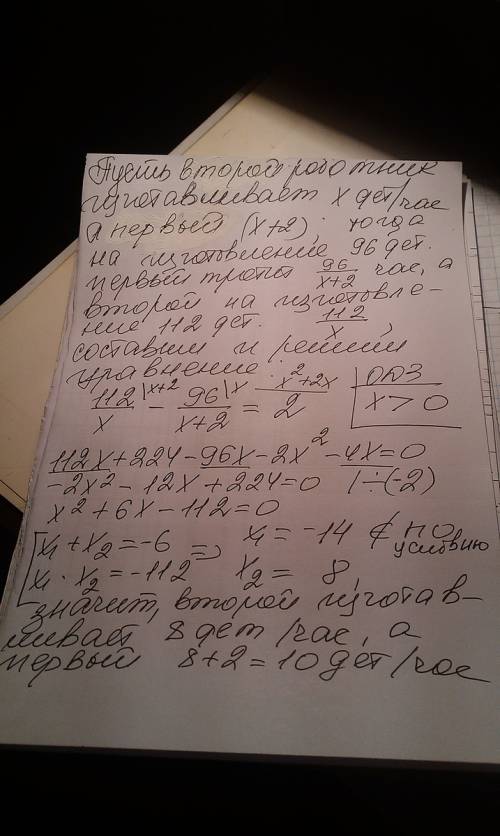 Пусть второй работник
изготавливает x дет/час
а первый (x+2), тогда
на изготовление 96 дет.
первый тратит 96/(x+2) час, а
второй на изготовле-
ние 112 дет. 112/x,
составим и решим
уравнение:
112/x |x+2 - 96/(x+2) |x = 2 |x²+2x ОДЗ x>0
112x+224-96x-2x²-4x=0
-2x²-12x+224=0 |÷(-2)
x²+6x-112=0
x₁+x₂=-6 => x₁=-14 ∉ по условию
x₁·x₂=-112 x₂= 8,
значит, второй изготав-
ливает 8 дет/час, а
первый 8+2=10 дет/час